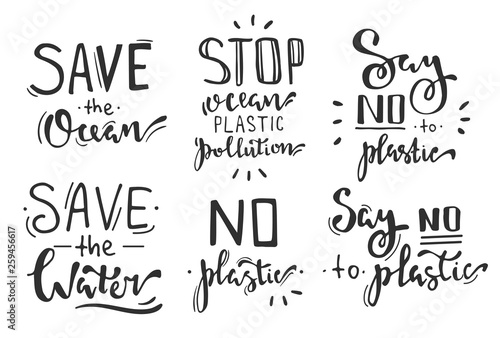 SAVE
·the·
Ocean
STOP
ocean
PLASTIC
pollution
Say
NO to
plastic
SAVE
the
Water
NO
plastic
Say NO
to plastic
Adobe Stock | #259456617